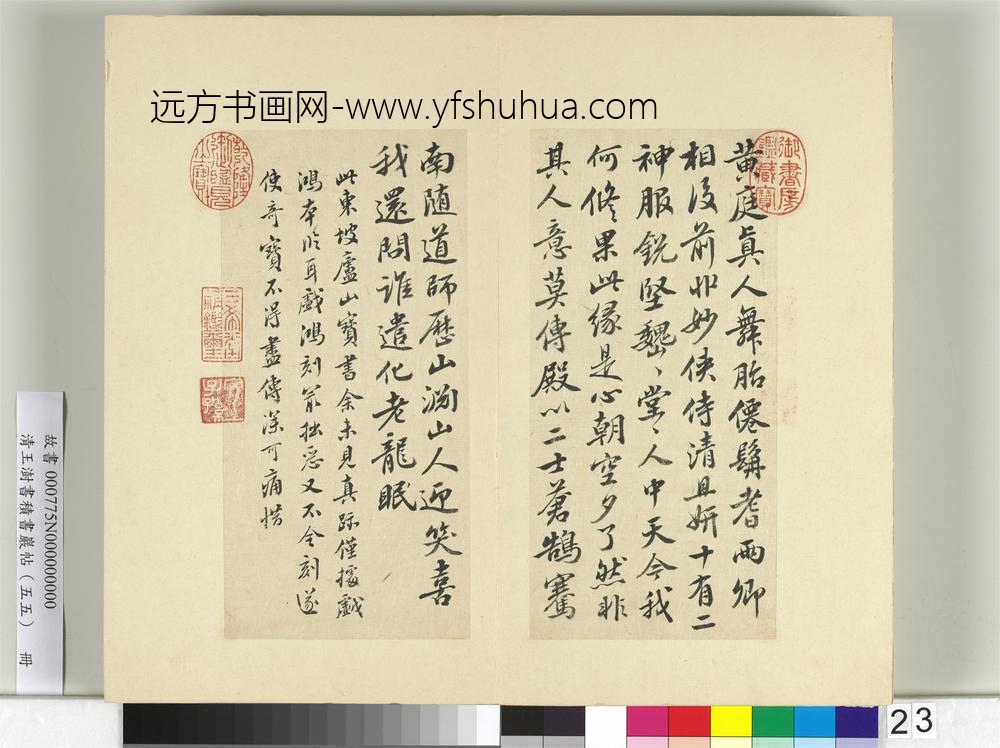 远方书画网-www.yfshuhua.com
黄庭真人舞胎僊髯耆兩卿
相後前丱妙侠侍清且妍十有二
神服鋭堅巍、堂、人中天今我
何修果此緣是心朝空夕了然非
其人意莫傳殿以二士蒼鵠騫
南隨道師歷山淵山人迎笑喜
我還問誰遣化老龍眠
此東坡廬山寶書余未見真跡僅據戲
鴻本臨耳戲鴻刻最拙惡又不全刻遂
使奇寶不得盡傳深可痛惜
御書房鑑藏寶
乾隆御覽之寶
三希堂精鑑璽
宜子孫
故書 000775N000000000
清王澍書積書巖帖（五五） 冊
23